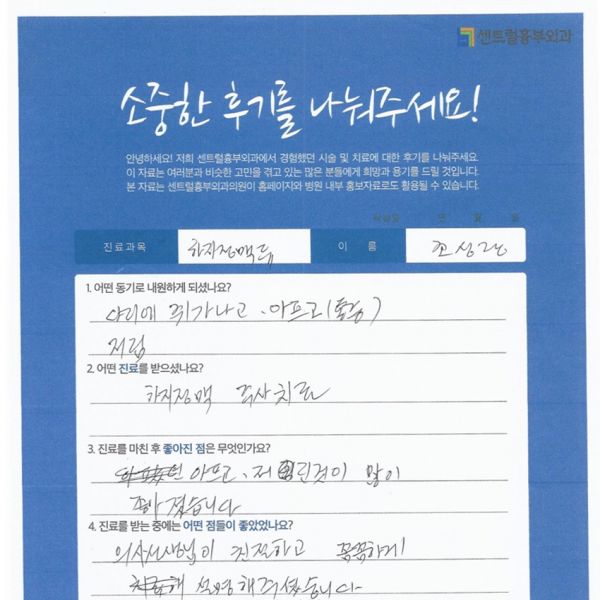 센트럴흉부외과
소중한 후기를 나눠주세요!
안녕하세요! 저희 센트럴흉부외과에서 경험했던 시술 및 치료에 대한 후기를 나눠주세요.
이 자료는 여러분과 비슷한 고민을 겪고 있는 많은 분들에게 희망과 용기를 드릴 것입니다.
본 자료는 센트럴흉부외과의원이 홈페이지와 병원 내부 홍보자료로도 활용될 수 있습니다.
작성일 년 월 일
진료과목 하지정맥류 이 름
1. 어떤 동기로 내원하게 되셨나요?
다리에 쥐가나고, 아프고(통증)
저림
2. 어떤 진료를 받으셨나요?
하지정맥 주사치료
3. 진료를 마친 후 좋아진 점은 무엇인가요?
아프고, 저린것이 많이
좋아졌습니다
4. 진료를 받는 중에는 어떤 점들이 좋았었나요?
의사선생님이 친절하고 꼼꼼하게
설명해주셨습니다